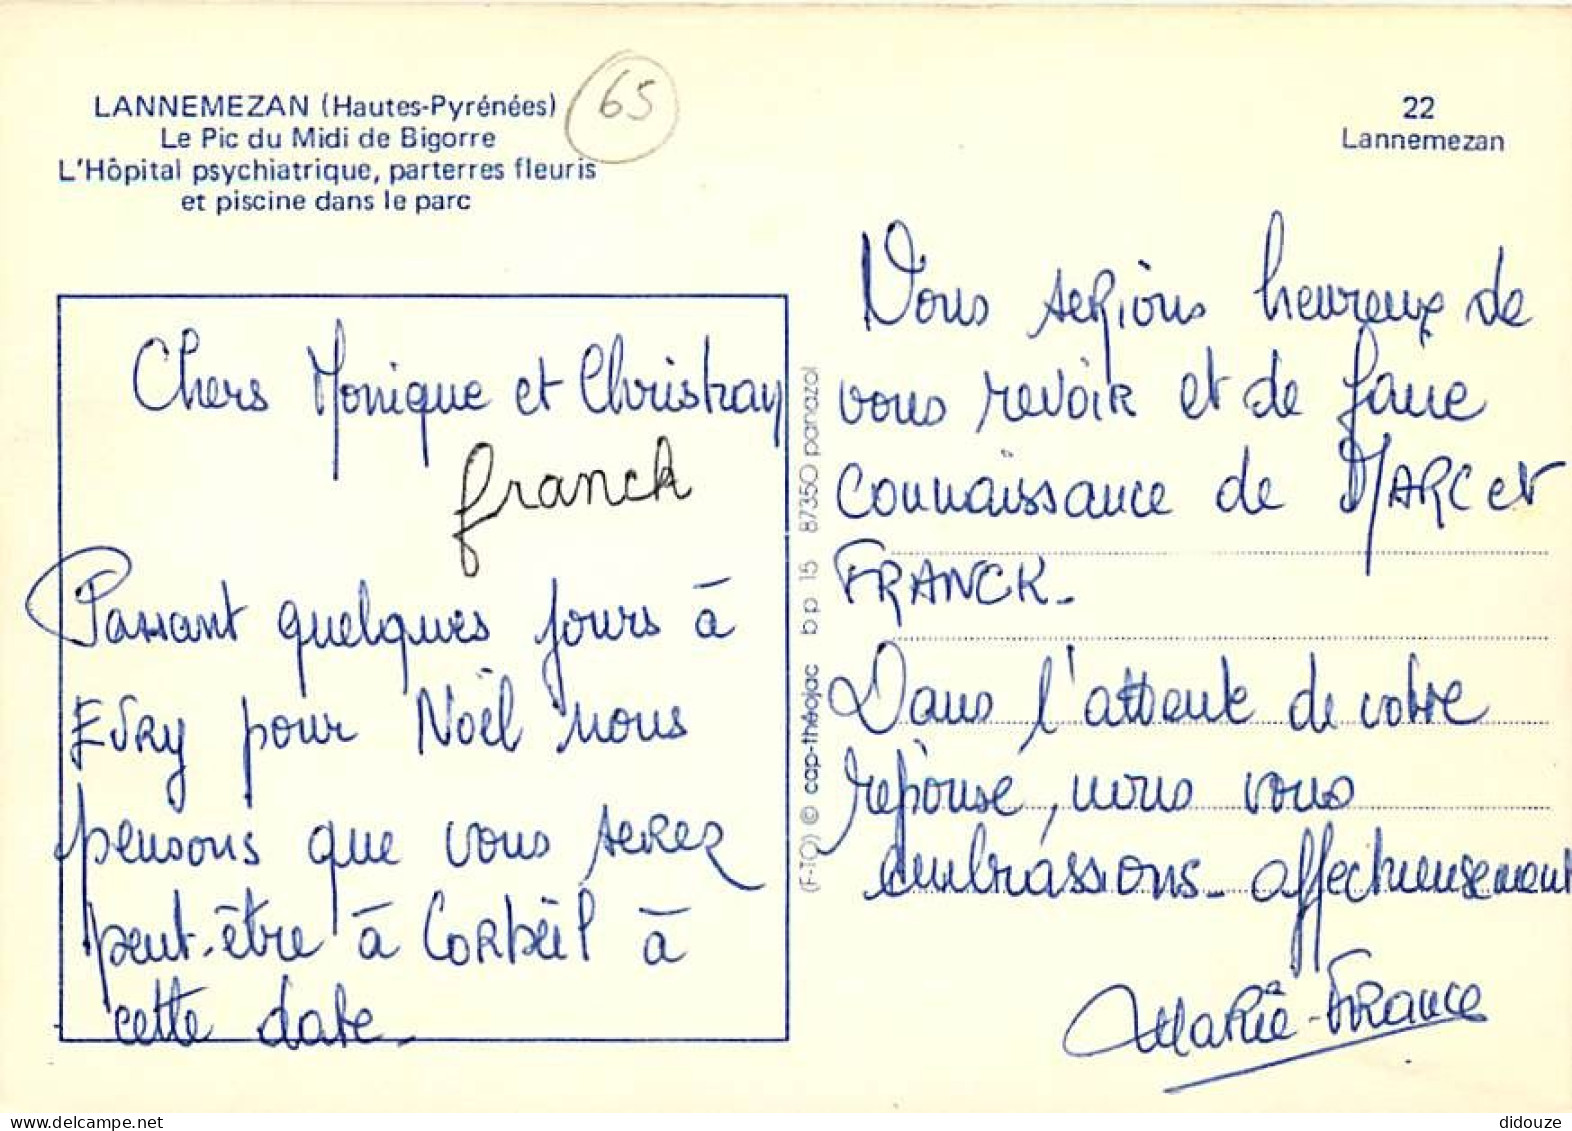 LANNEMEZAN (Hautes-Pyrénées)
Le Pic du Midi de Bigorre
L'Hôpital psychiatrique, parterres fleuris
et piscine dans le parc
65
22
Lannemezan
Chers Monique et Christian
franck
Passant quelques jours à
Evry pour Noël nous
pensons que vous serez
peut-être à Corbeil à
cette date.
(F-TO) © cap-théojac bp 15 87350 panazol
Nous serions heureux de
vous revoir et de faire
connaissance de MARC et
FRANCK.
Dans l'attente de votre
réponse, nous vous
embrassons affectueusement
Marie-France
didouze